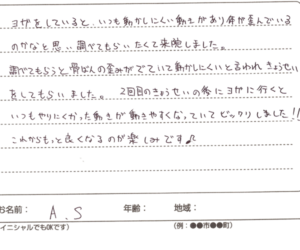 ヨガをしていると、いつも動かしにくい動きがあり体が歪んでいる
のかなと思い調べてもらいたくて来院しました。
調べてもらうと骨ばんの歪みがでていて動かしにくいと言われきょうせい
をしてもらいました。 2回目のきょうせいの後にヨガに行くと
いつもやりにくかった動きが動きやすくなっていてビックリしました!!
これからもっと良くなるのが楽しみです♪
お名前: A.S 年齢: 地域:
イニシャルでもOKです) (例:●●市●●町)